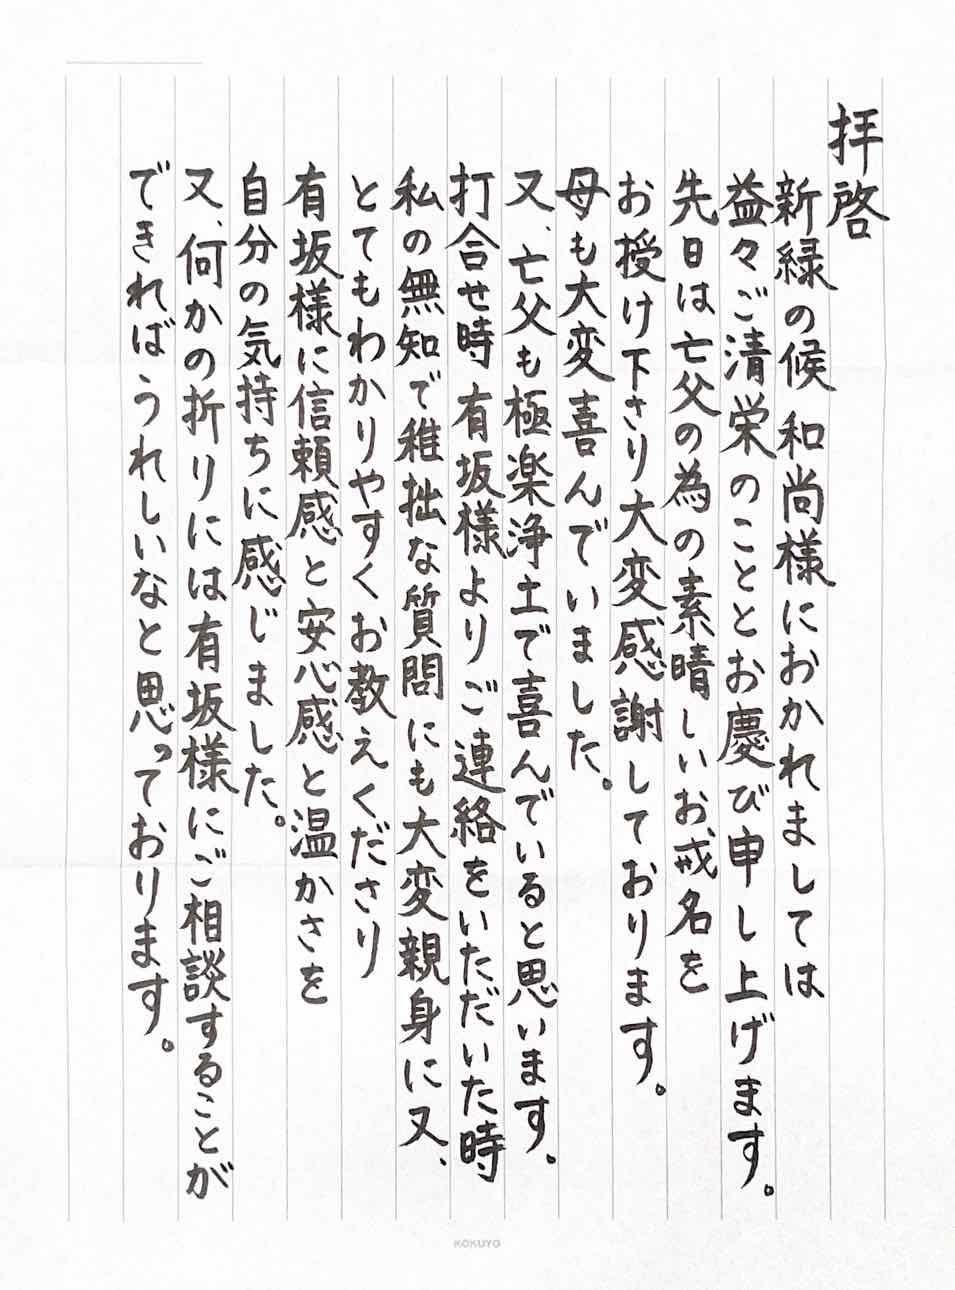 拝啓
新緑の候 和尚様におかれましては
益々ご清栄のこととお慶び申し上げます。
先日は亡父の為の素晴しいお戒名を
お授け下さり大変感謝しております。
母も大変喜んでいました。
又、亡父も極楽浄土で喜んでいると思います。
打合せ時 有坂様よりご連絡をいただいた時
私の無知で稚拙な質問にも大変親身に又、
とてもわかりやすくお教えくださり
有坂様に信頼感と安心感と温かさを
自分の気持ちに感じました。
又、何かの折りには有坂様にご相談することが
できればうれしいなと思っております。
KOKUYO